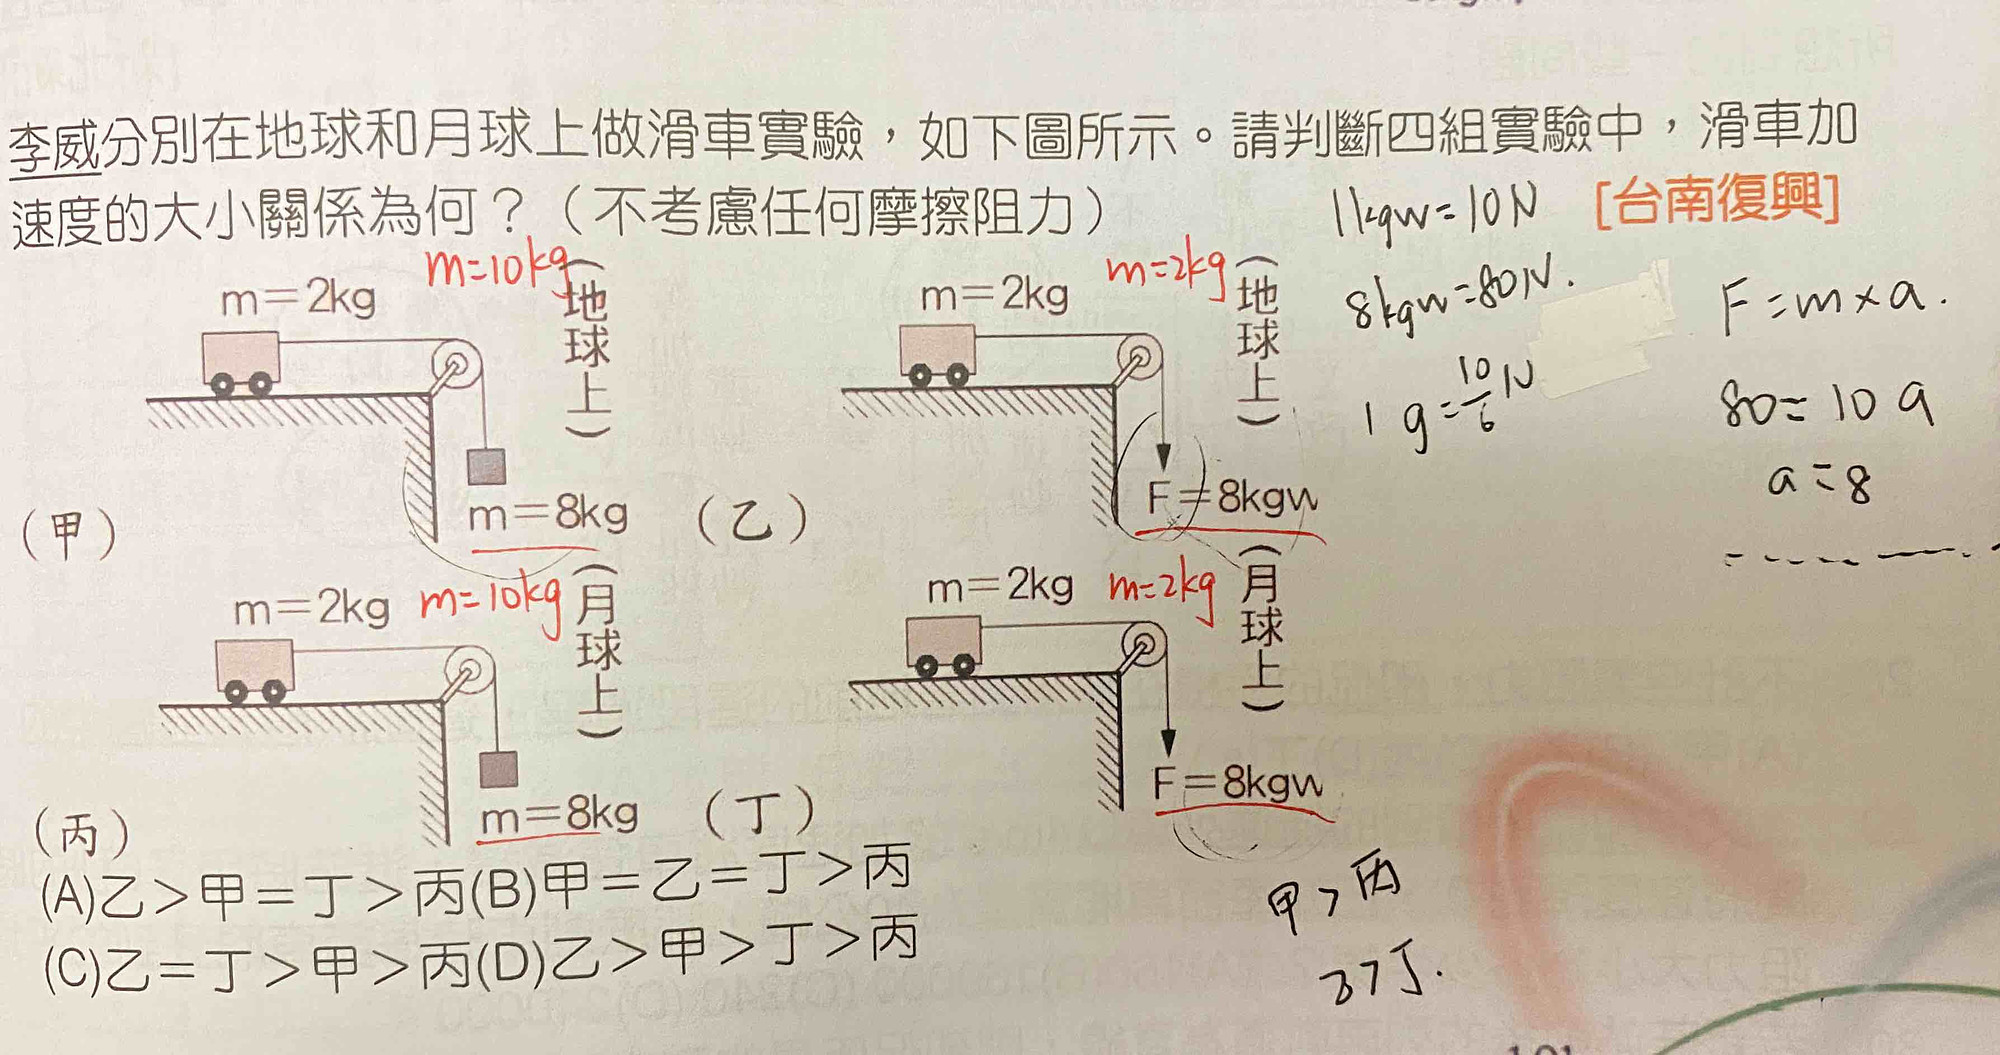 李威分別在地球和月球上做滑車實驗，如下圖所示。請判斷四組實驗中，滑車加
速度的大小關係為何？（不考慮任何摩擦阻力）
[台南復興]
1kgw=10N
8kgw=80N.
1g=10/6N
F=m×a.
80=10a
a=8
m=10kg
m=2kg
（地球上）
m=8kg
（甲）
m=2kg
m=2kg
（地球上）
F=8kgw
（乙）
m=10kg
m=2kg
（月球上）
m=8kg
（丙）
m=2kg
m=2kg
（月球上）
F=8kgw
（丁）
(A)乙＞甲＝丁＞丙(B)甲＝乙＝丁＞丙
(C)乙＝丁＞甲＞丙(D)乙＞甲＞丁＞丙
甲>丙
乙>丁.